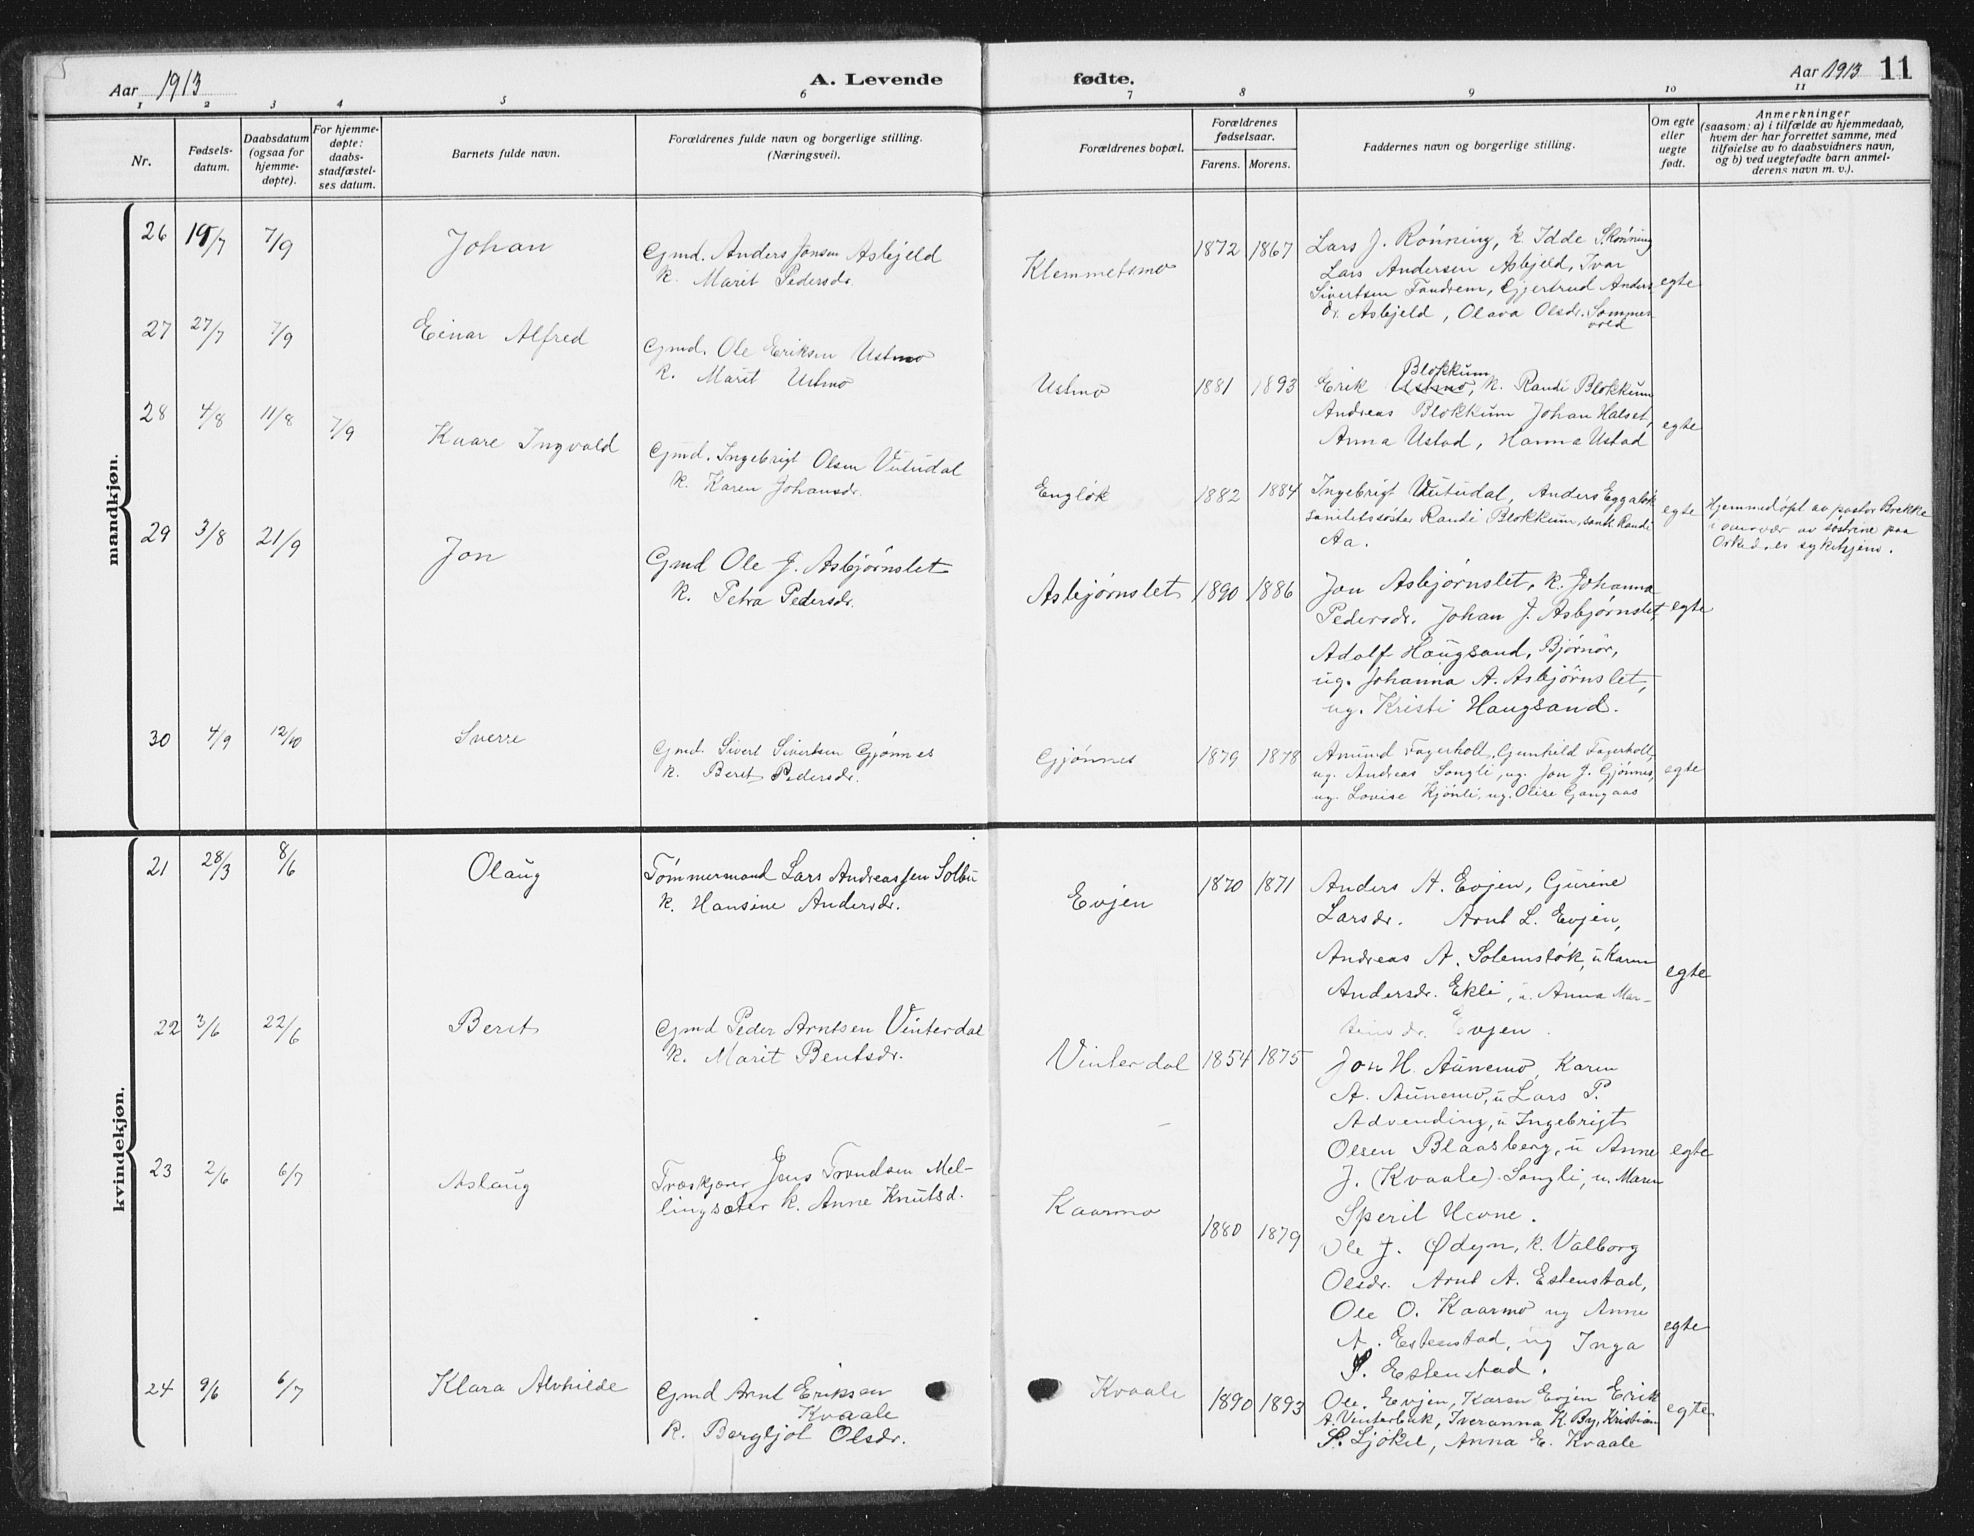 Aar 1913
A. Levende
fødte.
Aar 1913 11
1 2 3 4 5 6 7 8 9 10 11
Nr.
Fødsels-
datum.
Daabsdatum
(ogsaa for
hjemme-
døpte).
For hjemme-
døpte:
daabs-
stadfæstel-
ses datum.
Barnets fulde navn.
Forældrenes fulde navn og borgerlige stilling.
(Næringsvei).
Forældrenes bopæl.
Forældrenes
fødselsaar.
Farens. Morens.
Faddernes navn og borgerlige stilling.
Om egte
eller
uegte
født.
Anmerkninger
(saasom: a) i tilfælde av hjemmedaab,
hvem der har forrettet samme, med
tilføielse av to daabsvidners navn,
og b) ved uegtefødte barn anmel-
derens navn m. v.).
mandkjøn.
26 19/7 7/9 Johan
Gmd. Anders Jonsen Asbjeld
k. Marit Pedersdr.
Klemmetsmo 1872 1867
Lars J. Rønning, k. Idde S. Rønning
Lars Andersen Asbjeld, Ivar
Sivertsen Fandrem, Gjertrud Anders
dr. Asbjeld, Olava Olsdr. Sommer
vold
egte
27 27/7 7/9 Einar Alfred
Gmd. Ole Eriksen Ustmo
k. Marit Ustmo
Ustmo 1881 1893
Blokkum
Erik Ustmo, k. Randi Blokkum
Andreas Blokkum Johan Halset,
Anna Ustad, Hanna Ustad
egte
28 4/8 11/8 7/9 Kaare Ingvald
Gmd. Ingebrigt Olsen Vutudal
k. Karen Johansdr.
Engløk 1882 1884
Ingebrigt Vutudal, Anders Eggaløk
sanitetssøster Randi Blokkum, samt Randi
Aa.
egte
Hjemmedøpt av pastor Brekke
i overvær av søstrene paa
Orkedales sykehjem.
29 3/8 21/9 Jon
Gmd Ole J. Asbjørnslet
k. Petra Pedersdr.
Asbjørnslet 1890 1886
Jon Asbjørnslet, k. Johanna
Pedersdr. Johan J. Asbjørnslet,
Adolf Haugsand, Bjørnør,
ug. Johanna A. Asbjørnslet,
ug. Kristi Haugsand.
egte
30 4/9 12/10 Sverre
Gmd. Sivert Sivertsen Gjønnes
k. Beret Pedersdr.
Gjønnes 1879 1878
Amund Fagerholt, Gunhild Fagerholt,
ug. Andreas Songli, ug. Jon J. Gjønnes,
ug. Lovise Kjønli, ug. Olise Gangaas
egte
kvindekjøn.
21 28/3 8/6 Olaug
Tømmermand Lars Andreassen Solbu
k. Hansine Andersdr.
Evjen 1870 1871
Anders A. Evjen, Gurine
Larsdr. Arnt L. Evjen,
Andreas A. Solemsløk, u Karen
Andersdr. Ekli, u. Anna Mar-
tinsdr. Evjen.
egte
22 3/6 22/6 Beret
Gmd Peder Arntsen Vinterdal
k. Marit Bentsdr.
Vinterdal 1854 1875
Jon H. Aunemo, Karen
A. Aunemo, u Lars P.
Advending, u Ingebrigt
Olsen Blaasberg, u Anne
J. (Kvaale) Songli, u. Maren
Speril Hevne.
egte
23 2/6 6/7 Aslaug
Træskjærer Jens Trondsen Mel-
lingsæter k. Anne Knutsd.
Kaarmo 1880 1879
Ole J. Ødyn, k. Valborg
Olsdr. Arnt A. Estenstad,
Ole O. Kaarmo ug Anne
A. Estenstad, ug Inga
S. Estenstad.
egte
24 9/6 6/7 Klara Alvhilde
Gmd Arnt Eriksen
Kvaale
k. Bergljot Olsdr.
Kvaale 1890 1893
Ole Evjen, Karen Evjen Erik
A. Vinterbuk, Iveranna K. By, Kristian
S. Ljøkel, Anna E. Kvaale
egte